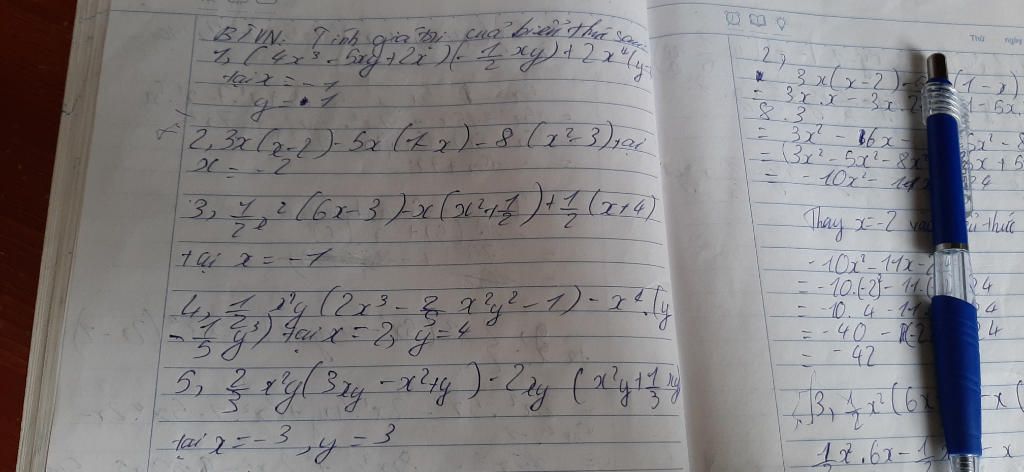 BTVN. Tính giá trị của biểu thức sau
1, (4x³ - 5xy + 2x) (-1/2 xy) + 2x⁴(y
tại x = -1
y = 1
2, 3x(x-2) - 5x(1-x) - 8(x²-3) tại
x = -2
3, 1/2 x² (6x-3) - x(x²+1/2) + 1/2(x+4)
tại x = -1
4, 1/2 x²y (2x³ - 2/5 x²y² - 1) - x⁴.(y
- 1/5 y³) tại x = 2, y = 4
5, 2/3 x²y(3xy - x²+y) - 2xy (x²y + 1/3 xy
tại x = -3, y = 3
Thứ ngày
2,
3x(x-2) (1-x)
= 3x.x - 3x.2
8.3
= 3x² - 6x x² - 8
= (3x² - 5x² - 8x² x + 5
= -10x² - 11x 24
Thay x = -2 thức
-10x² - 11x -
= -10.(-2)² - 11. 24
= -10.4 - 11 24
= -40 - 24
= -42
3, 1/2 x² (6x - x (
1/2 x².6x - 1/2 x - x